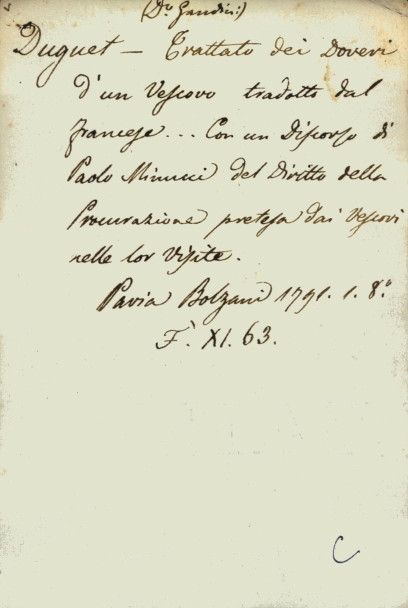 (Dr. Gandini:)
Duguet — Trattato dei Doveri
d'un Vescovo tradotto dal
francese... Con un Discorso di
Paolo Minucci del Diritto della
Procurazione pretesa dai Vescovi
nelle lor Visite.
Pavia Bolzani 1791. 1. 8.º
F. XI. 63.
C